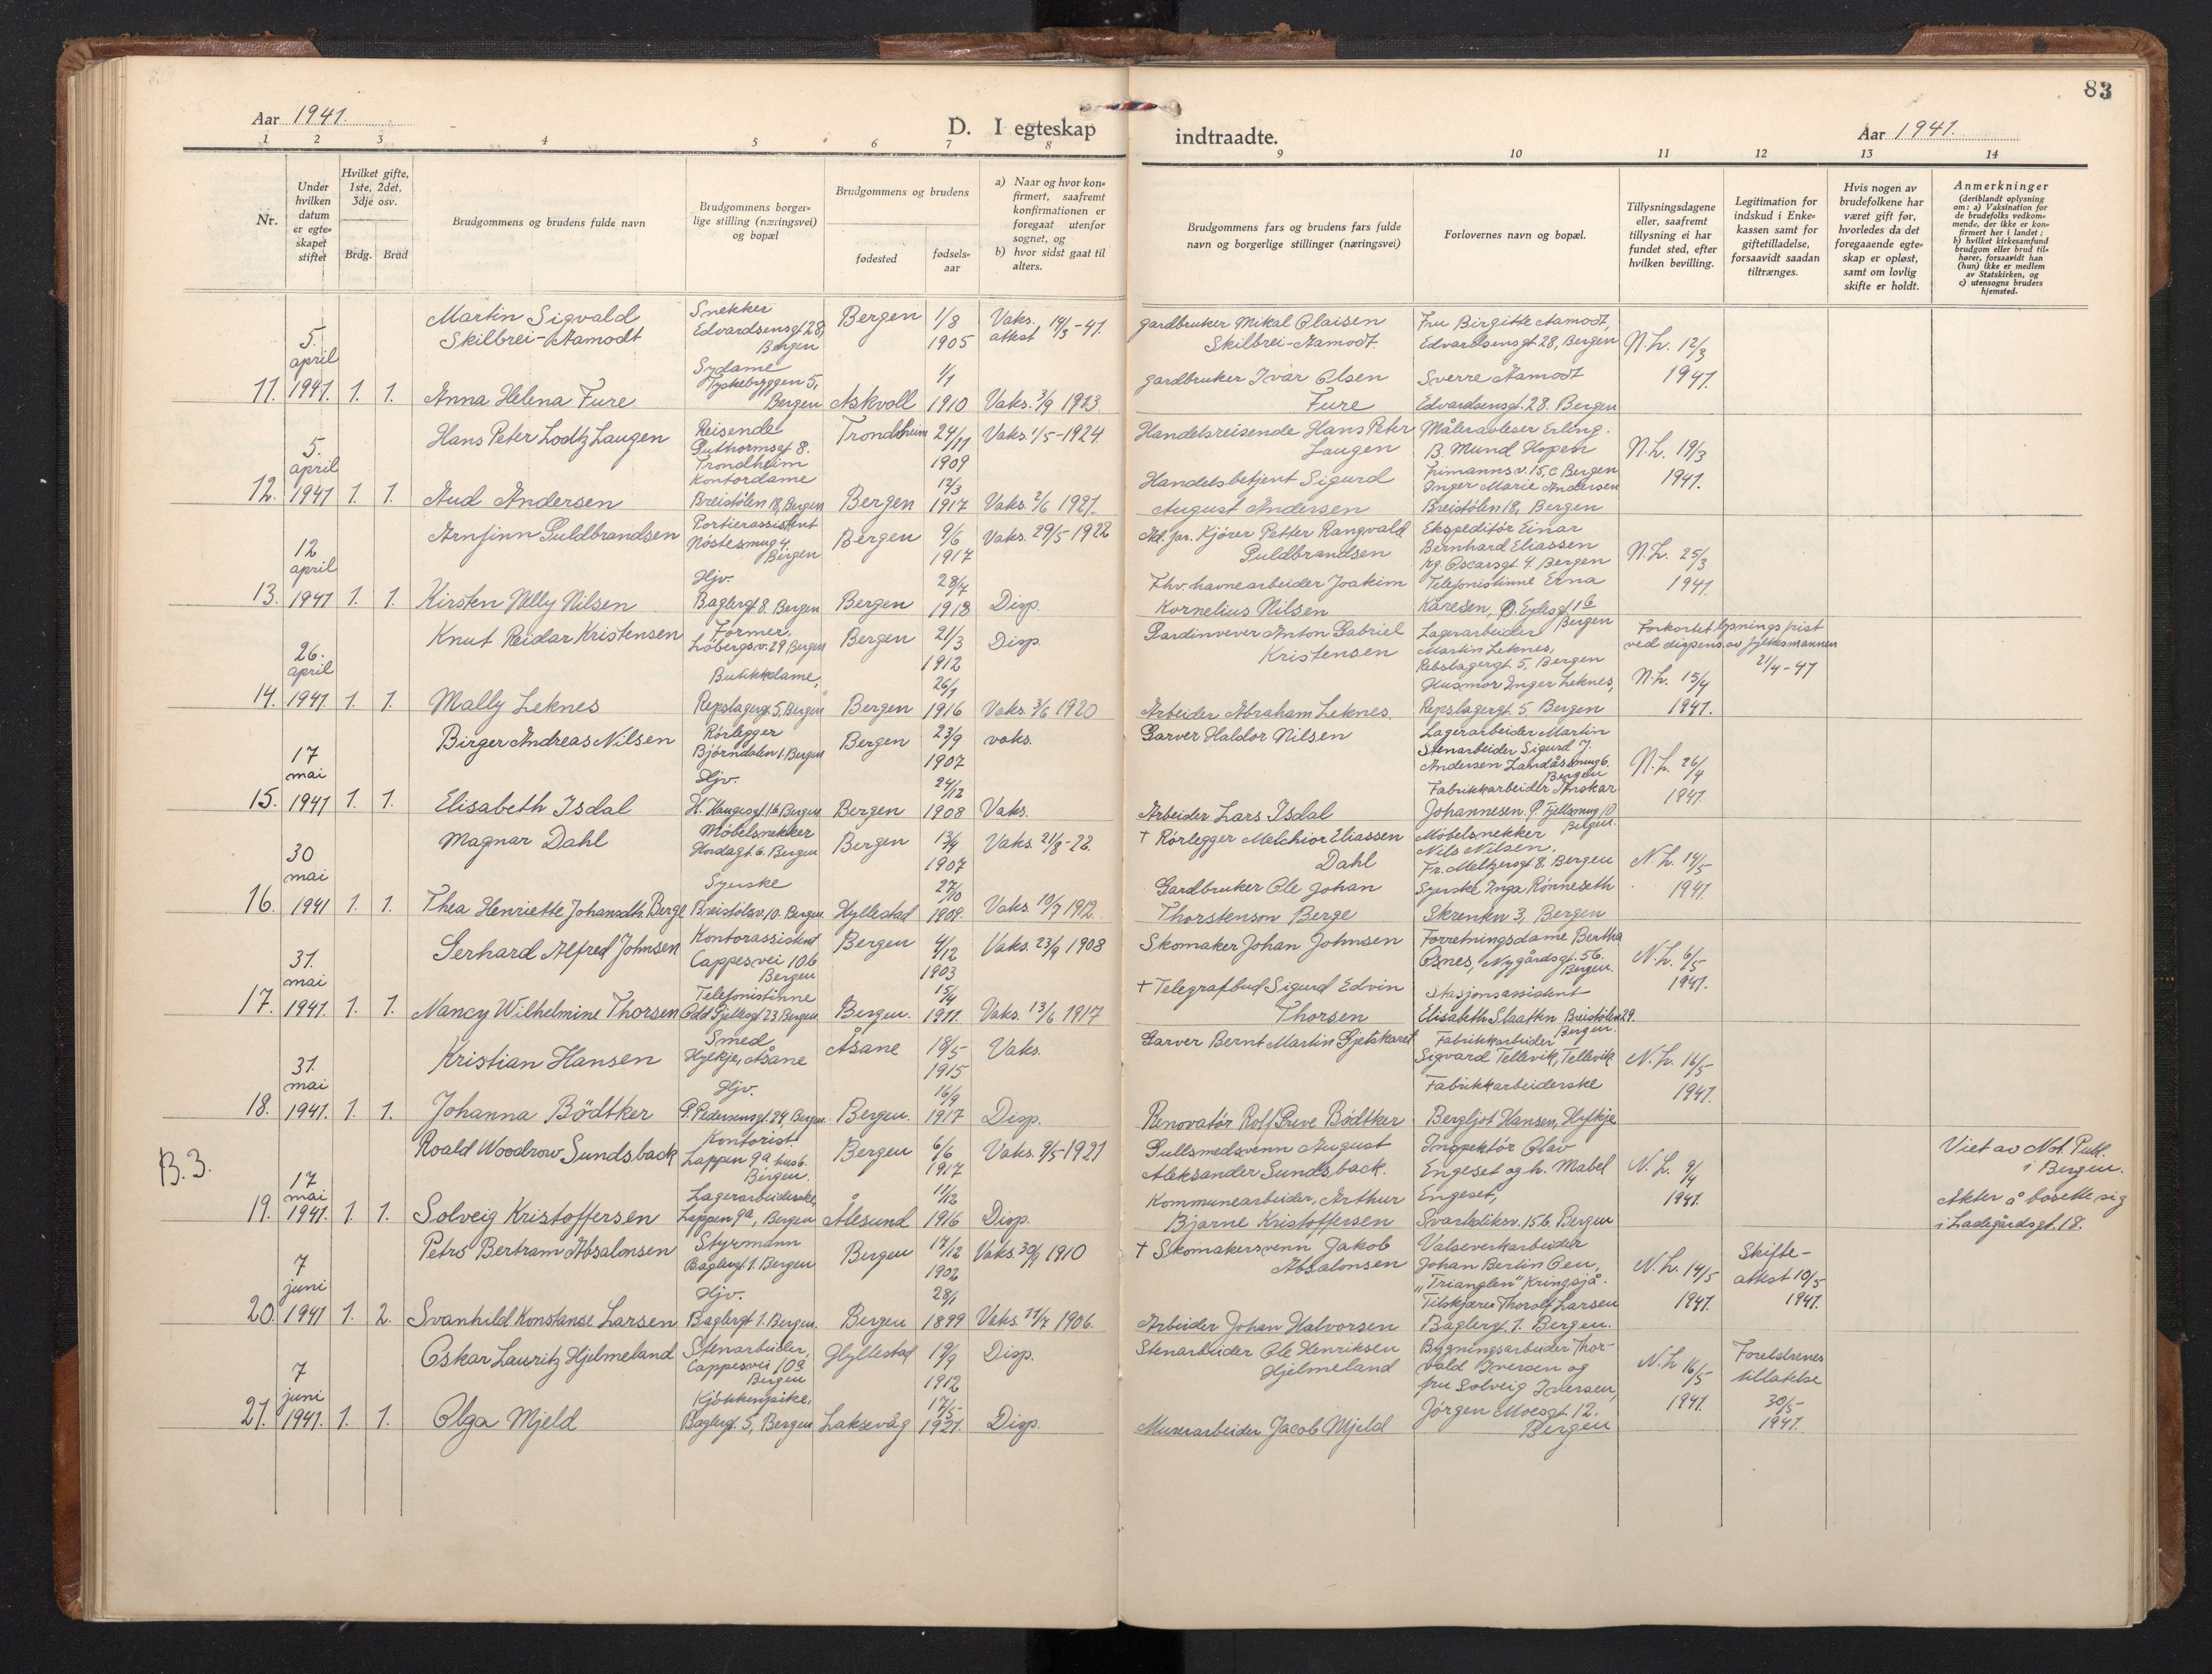 83
Aar 1941.
D. I egteskap indtraadte.
Aar 1941.
1 2 3 4 5 6 7 8 9 10 11 12 13 14
Nr.
Under hvilken datum er egteskapet stiftet
Hvilket gifte, 1ste, 2det, 3dje osv.
Brdg. Brud
Brudgommens og brudens fulde navn
Brudgommens borgerlige stilling (næringsvei) og bopæl
Brudgommens og brudens
fødested
fødselsaar
a) Naar og hvor konfirmert, saafremt konfirmationen er foregaat utenfor sognet, og
b) hvor sidst gaat til alters.
Brudgommens fars og brudens fars fulde navn og borgerlige stillinger (næringsvei)
Forlovernes navn og bopæl.
Tillysningsdagene eller, saafremt tillysning ei har fundet sted, efter hvilken bevilling.
Legitimation for indskud i Enkekassen samt for giftetilladelse, forsaavidt saadan tiltrænges.
Hvis nogen av brudefolkene har været gift før, hvorledes da det foregaaende egteskap er opløst, samt om lovlig skifte er holdt.
Anmerkninger
(deriblandt oplysning om: a) Vaksination for de brudefolks vedkommende, der ikke er konfirmert her i landet; b) hvilket kirkesamfund brudgom eller brud tilhører, forsaavidt han (hun) ikke er medlem av Statskirken, og c) utensogns bruders hjemsted.
11. 5. april 1941. 1. 1.
Martin Sigvald Skilbrei-Aamodt
Snekker Edvardsensgt 28, Bergen
Bergen 1/8 1905
Vaks. attest 14/3-41.
gardbruker Mikal Olaisen Skilbrei-Aamodt.
Fru Birgitte Aamodt, Edvardsensgt 28, Bergen
N.L. 12/3 1941.
Anna Helena Fure
Sydame Tyskebryggen 5, Bergen
Askvoll 1/1 1910
Vaks. 3/9 1923
gardbruker Ivar Olsen Fure
Sverre Aamodt Edvardsensgt. 28. Bergen
12. 5. april 1941 1. 1.
Hans Peter Lodtz Laugen
Reisende Guthormsgt 8. Trondheim
Trondheim 24/11 1909
Vaks. 1/5-1924
Handelsreisende Hans Peter Laugen
Måleravleser Erling B. Mund Hopen v. 15, c Bergen
N.L. 19/3 1941.
Aud Andersen
Kontordame Breistølen 18, Bergen
Bergen 12/3 1917
Vaks. 2/6 1921.
Handelsbetjent Sigurd August Andersen
Inger Marie Andersen Breistølen 18, Bergen
13. 12 april 1941 1. 1.
Arnfinn Guldbrandsen
Portierassistent Nøstesmug 4 Bergen
Bergen 9/6 1917
Vaks. 29/5 1922
Ad. pr. Kjører Petter Rangvald Guldbrandsen
Ekspeditør Einar Bernhard Eliassen Kg. Oscarsgt. 4 Bergen
N.L. 25/3 1941.
Kirsten Nelly Nilsen
Hjv. Baglergt 8. Bergen
Bergen 28/4 1918
Disp.
Fhv. havnearbeider Joakim Kornelius Nilsen
Telefonistinne Erna Kåresen, Bergen
14. 26. april 1941. 1. 1.
Knut Reidar Kristensen
Former. Løbergsv. 29 Bergen
Bergen 21/3 1912
Disp.
Gardinvever Anton Gabriel Kristensen
Lagerarbeider Martin Leknes, Rebslagergt 5, Bergen
Forkortet lysnings frist ved dispens. av fylkesmannen 21/4-41
N.L. 15/4 1941.
Mally Leknes
Butikkdame, Repslagergt 5, Bergen
Bergen 26/1 1916
Vaks. 3/6 1920
Arbeider Abraham Leknes.
Husmor Inger Leknes, Repslagergt. 5. Bergen
15. 17 mai 1941 1. 1.
Birger Andreas Nilsen
Rørlegger Bjørndalen 1. Bergen
Bergen 23/9 1907
vaks.
Garver Haldor Nilsen
Lagerarbeider Martin
Stenarbeider Sigurd J. Andersen Landåsmug 6. Bergen
N.L. 26/4 1941.
Elisabeth Isdal
Hjv. H. Haugesgt. 16 Bergen
Bergen 24/12 1908
Vaks.
Arbeider Lars Isdal
Fabrikkarbeider Anskar Johannesen Ø. Fjellsmug 10 Bergen.
16. 30 mai 1941 1. 1.
Magnar Dahl
Møbelsnekker Hordagt. 6. Bergen
Bergen 13/4 1907
Vaks. 21/8-22.
† Rørlegger Melchior Eliassen Dahl
Møbelsnekker Nils Nilsen. Fr. Meltzersgt 8, Bergen
N.L. 14/5 1941.
Thea Henriette Johansdtr. Berge
Syerske Breistølsv. 10. Bergen.
Hyllestad 27/10 1909.
Vaks. 10/7 1912.
Gardbruker Ole Johan Thorstenson Berge
Syerske Inga Rønneseth Skrenten 3, Bergen
17. 31. mai 1941. 1. 1.
Gerhard Alfred Johnsen
Kontorassistent Cappesvei 10b Bergen
Bergen 4/12 1903
Vaks. 23/9 1908
Skomaker Johan Johnsen
Forretningsdame Bertha Osnes, Nygårdsgt. 56. Bergen.
N.L. 6/5 1941.
Nancy Wilhelmine Thorsen
Telefonistinne Odd Gjellesgt 23 Bergen
Bergen. 15/4 1911.
Vaks. 13/6 1917
† Telegrafbud Sigurd Edvin Thorsen
Stasjonsassistent Elisabeth Slaatten Breistølen 29. Bergen.
18. 31. mai 1941. 1. 1.
Kristian Hansen
Smed Hylkje, Åsane
Åsane 18/5 1915
Vaks.
Garver Bernt Martin Gjetskaret
Fabrikkarbeider Sigvard Tellevik, Tellevik
N.L. 16/5 1941.
Johanna Bödtker
Hjv. P. Pedersensgt. 24, Bergen.
Bergen. 16/9 1917
Disp.
Renovatør Rolf Greve Bødtker
Fabrikkarbeiderske Bergljot Hansen, Hylkje
B.3.
19. 17 mai 1941. 1. 1.
Roald Woodrow Sundsback
Kontorist. Lappen 9a hus 6. Bergen.
Bergen 6/6 1917
Vaks. 9/5-1921
Gullsmedsvenn August Aleksander Sundsback.
Inspektør Olav Engeset og h. Mabel Engeset, Svartediksv. 15b. Bergen
N.L. 9/4 1941.
Viet av Not. Publ. i Bergen.
Akter å bosette sig i Ladegårdsgt. 18.
Solveig Kristoffersen
Lagerarbeiderske, Lappen 9a, Bergen
Ålesund 11/12 1916
Disp.
Kommunearbeider, Arthur Bjarne Kristoffersen
20. 7 juni 1941 1. 2.
Petro Bertram Absalonsen
Styrmann Baglergt 1. Bergen
Bergen 14/12 1902
Vaks. 30/9 1910
† Skomakersvenn Jakob Absalonsen
Valseverkarbeider Johan Bertin Oen, "Trianglen" Kringsjå.
N.L. 14/5 1941.
Skifte-attest 10/5 1941.
Svanhild Konstanse Larsen
Hjv. Baglergt 1. Bergen.
Bergen 28/1 1899
Vaks. 11/7 1906.
Arbeider Johan Halvorsen
Tilskjærer Thorolf Larsen Baglergt. 1. Bergen.
21. 7 juni 1941. 1. 1.
Oskar Lauritz Hjelmeland
Stenarbeider, Cappesvei 10a Bergen
Hyllestad 19/9 1912
Disp.
Stenarbeider Ole Henriksen Hjelmeland
Bygningsarbeider Thorvald Iversen og fru Solveig Iversen, Jörgen Moesgt. 12. Bergen
N.L. 16/5 1941.
Foreldrenes tillatelse 30/5-1941.
Olga Mjeld
Kjøkkenpike, Baglergt. 5, Bergen
Laksevåg 17/5 1921.
Disp.
Murerarbeider Jacob Mjeld